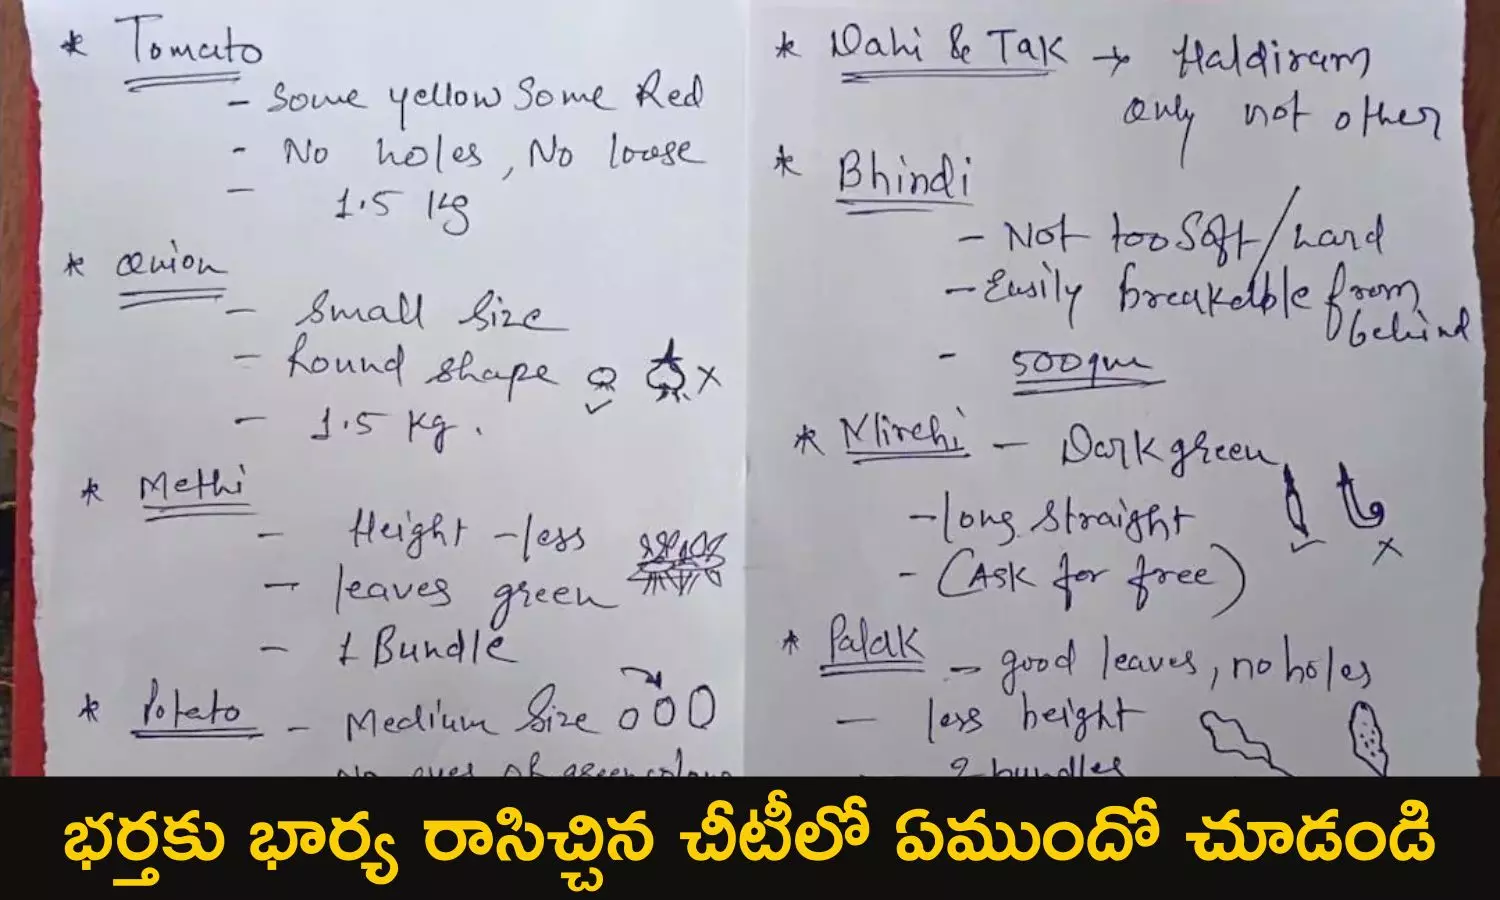 * Tomato
- Some yellow Some Red
- No holes, No loose
- 1.5 Kg
* Onion
- Small Size
- Round shape
- 1.5 Kg.
* Methi
- Height - less
- leaves green
- 1 Bundle
* Potato - Medium Size
No eyes of green colour
* Dahi & Tak → Haldiram
only not other
* Bhindi
- Not too Soft / hard
- Easily breakable from
behind
- 500gm
* Mirchi - Dark green
- long straight
- (Ask for free)
* Palak - good leaves, no holes
- less height
2 bundles
భర్తకు భార్య రాసిచ్చిన చీటీలో ఏముందో చూడండి